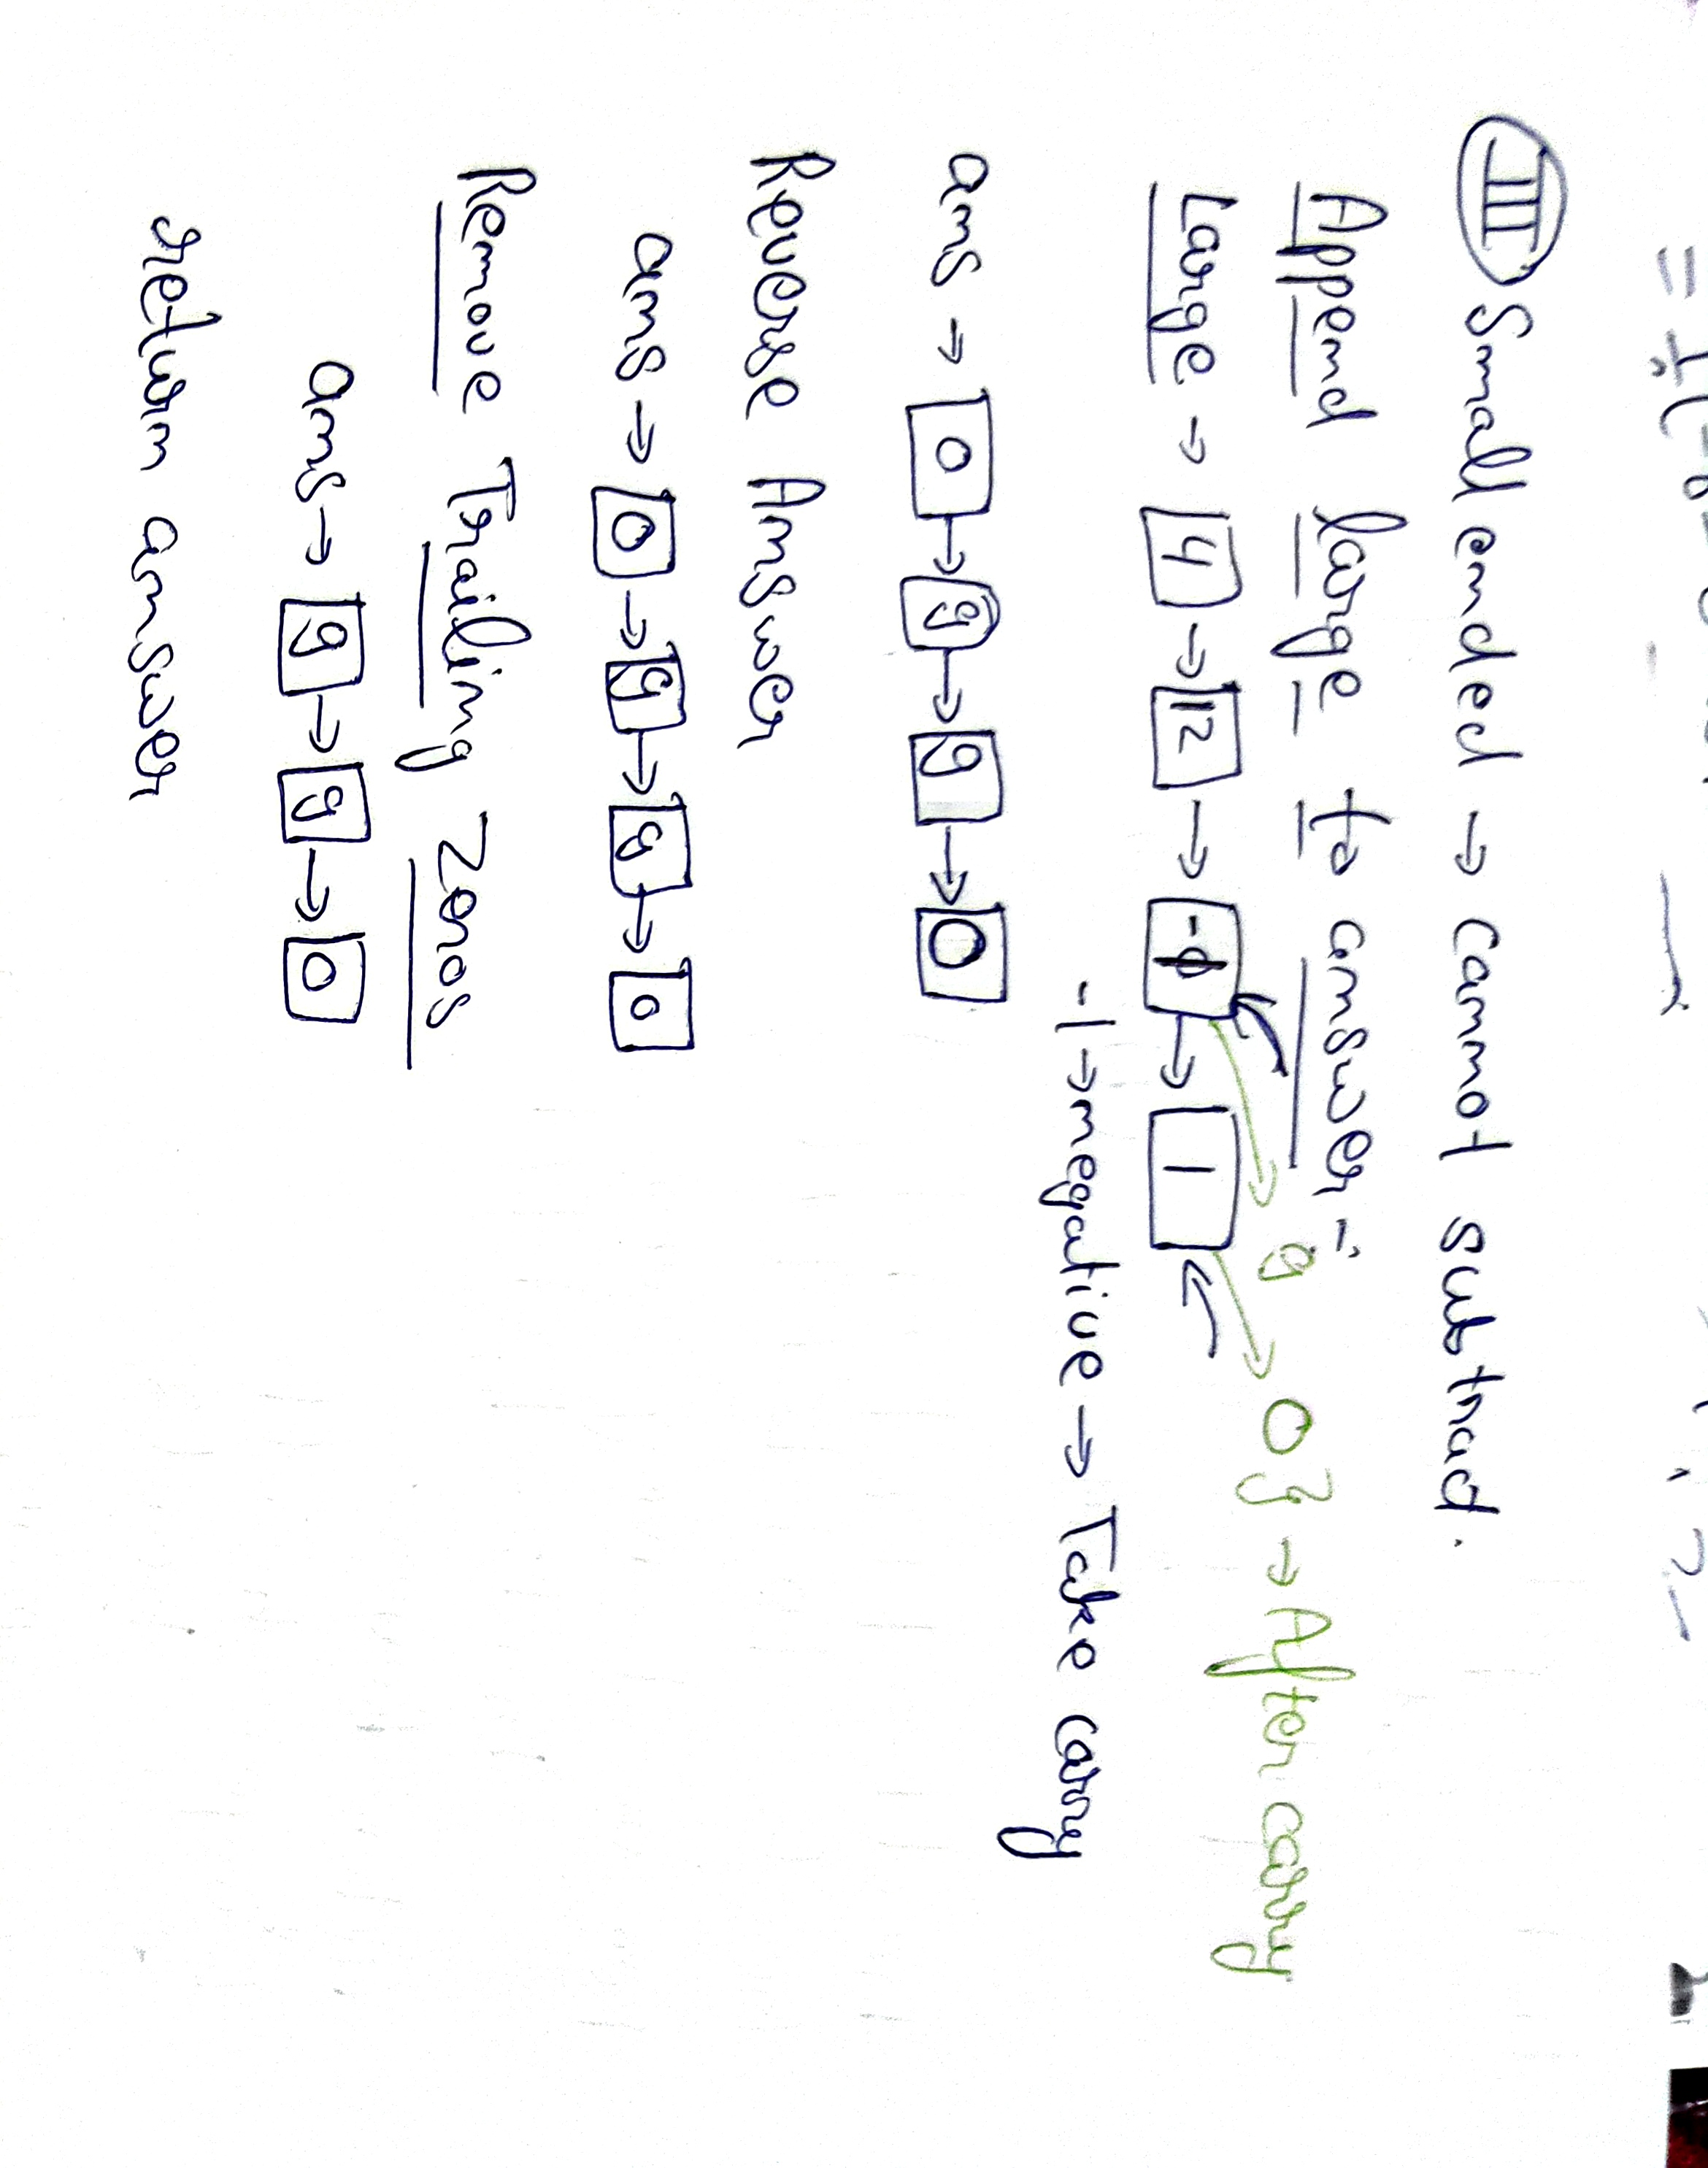 III Small ended → Cannot Subtract.
Append large to answer :-
9 0 } → After carry
Large → 4 → 12 → -0 → 1
-1 → negative → Take carry
ans → 0 → 9 → 9 → 0
Reverse Answer
ans → 0 → 9 → 9 → 0
Remove Trailing Zeros
ans → 9 → 9 → 0
return answer